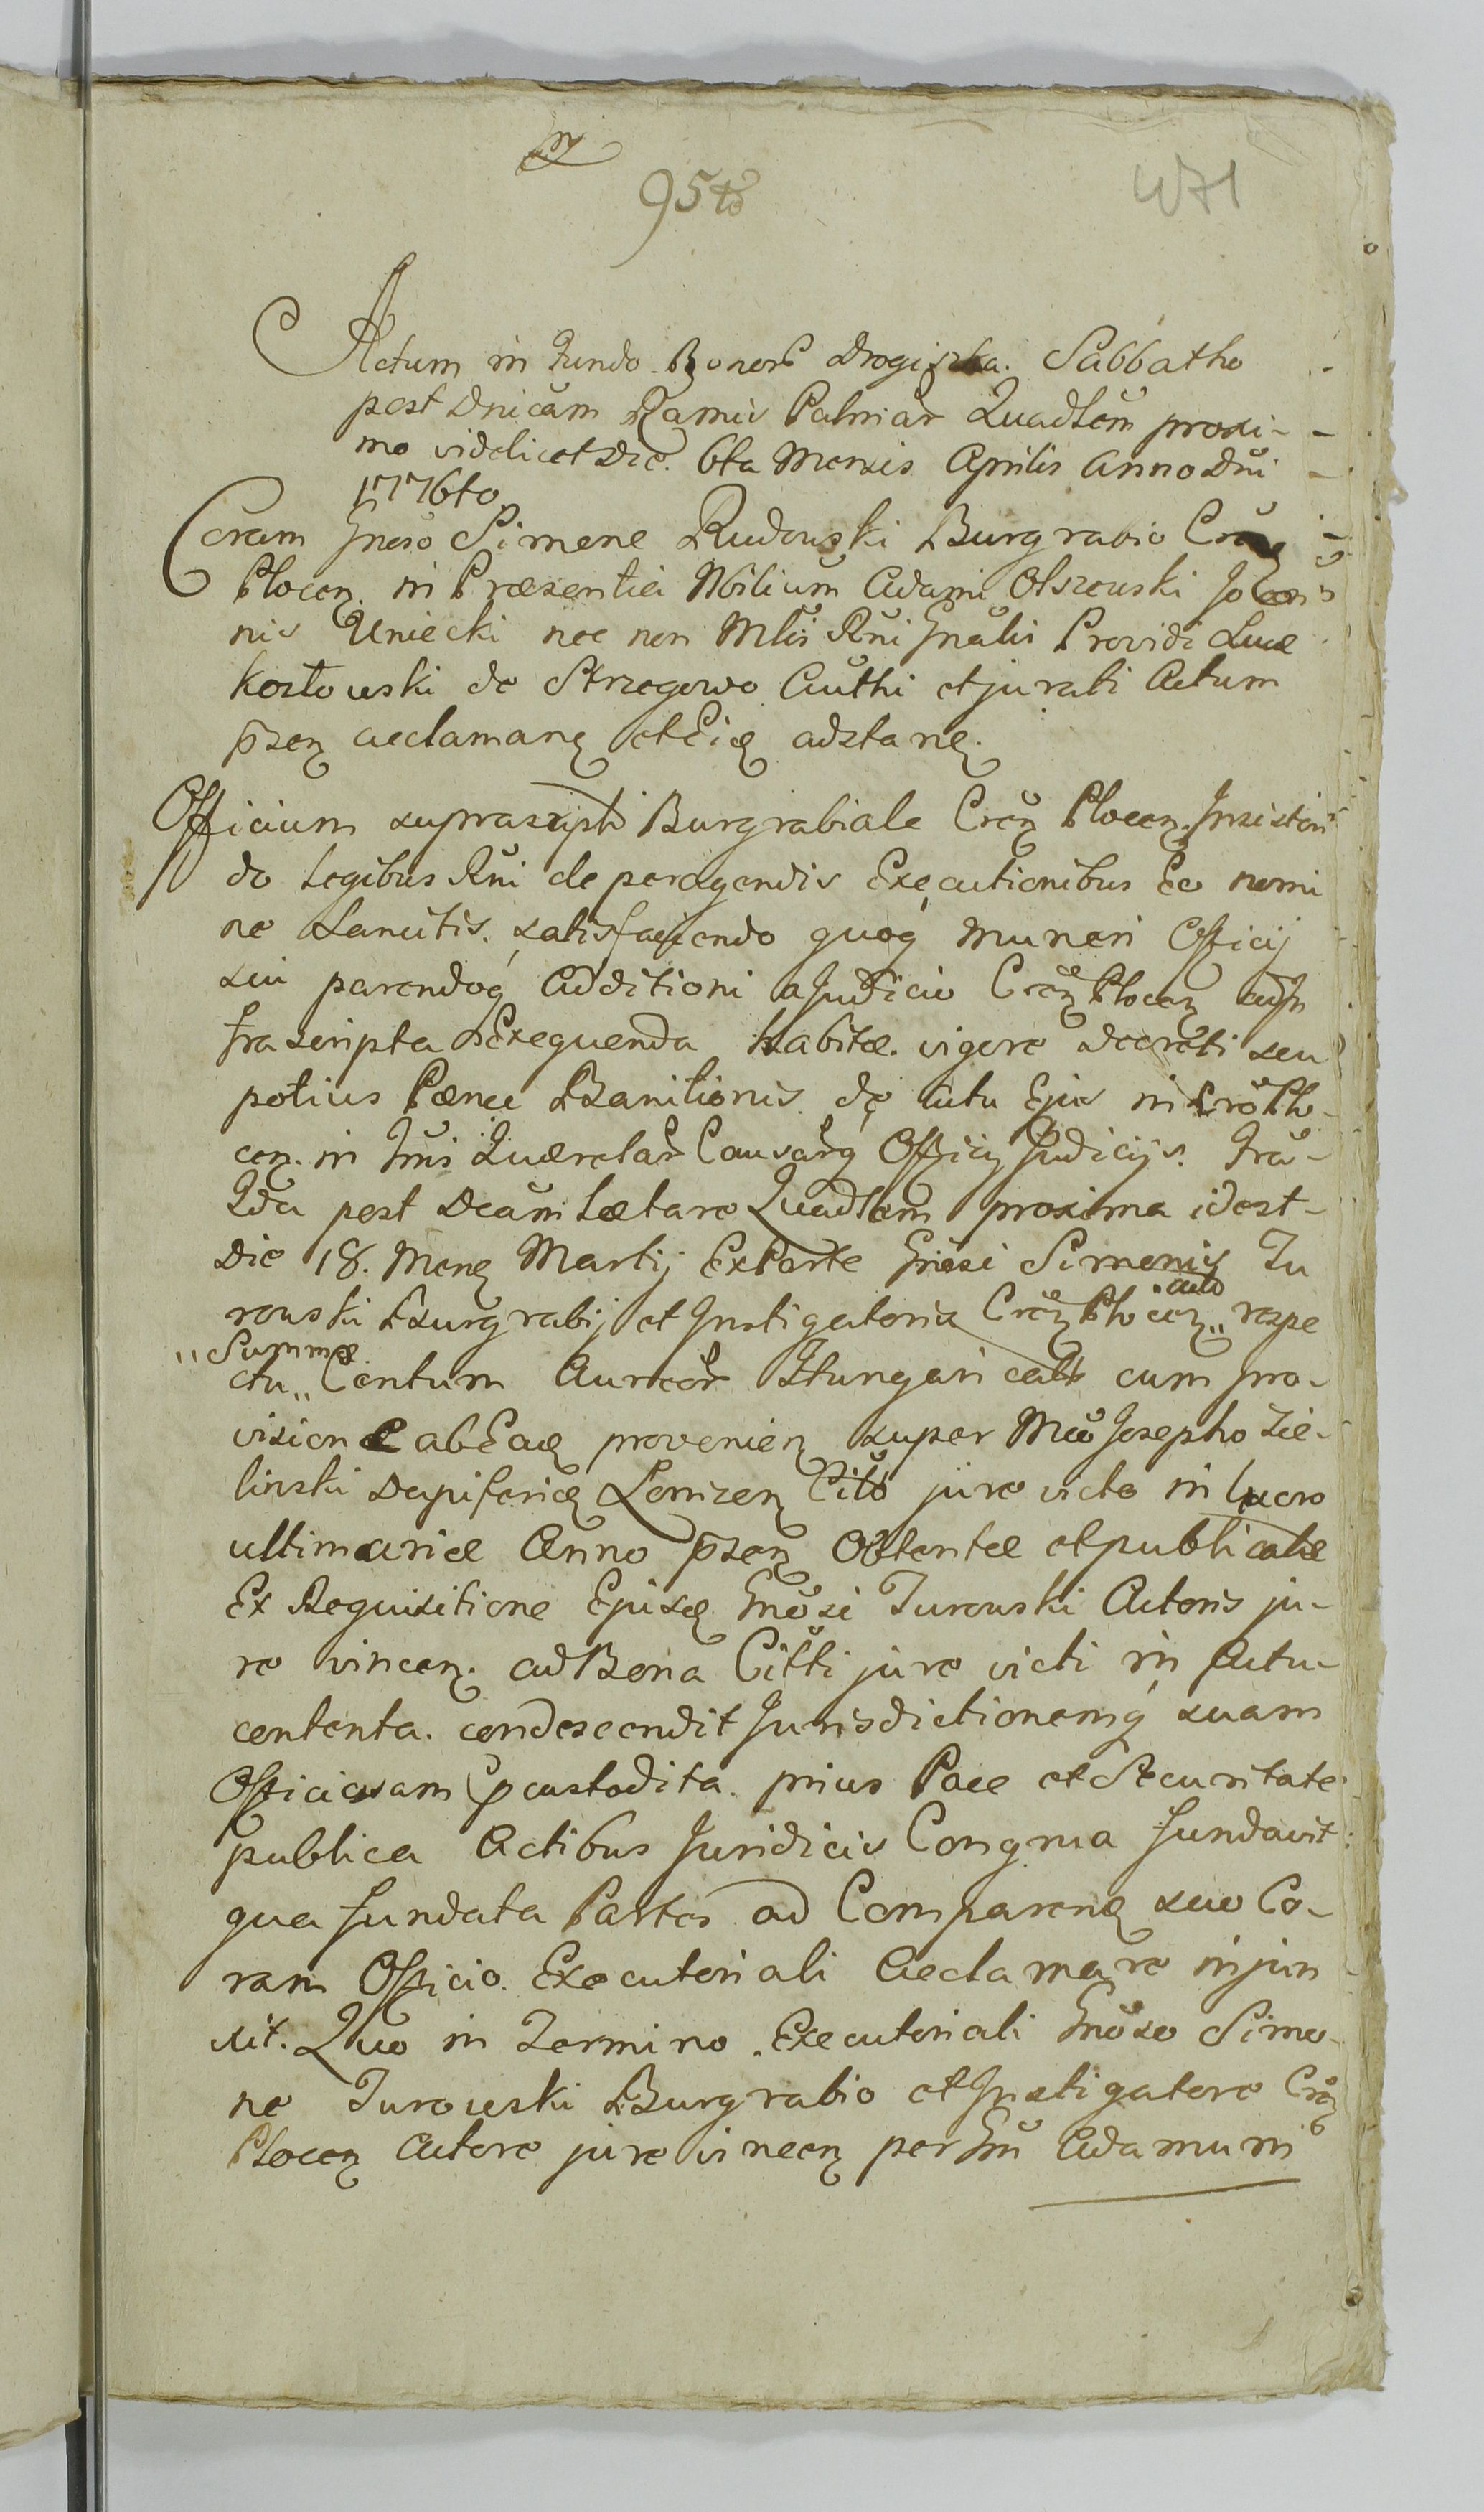 95to
471
Actum in fundo Bonor Drogiszka. Sabbatho
post Dnicam Ramis Palmar Quadlem proxi-
mo videlicet Die. 6ta Mensis Aprilis Anno Dni
1776to
Coram Gnoso Simone Rudowski Burgrabio
Plocen. in Præsentia Nbilium Adami Olszewski Joan
nis Uniecki nec non Mtlis Rni Gnalis Providi Lucæ
Kozłowski de Strzegowo Authi et jurati Actum
pnsen acclamanq et Eiq adstanq.
Officium suprascripti Burgrabiale Cren Plocen. Insisten
do Legibus Rni de peragendis Executionibus Eo nomi
ne Sancitis. satisfaciendo quoq muneri Officij
sui parendoq Additioni a Judicio Cren Plocen ad In
frascripta Exequenda habitæ. vigore Decreti seu
potius Pænæ Banitionis de actu Ejus in Cro Plo-
cen. in Tmis Querelar Causarq Officij Judicijs. Fra-
Ida post Dcam Lætare Quadlem proxima idest-
Die 18. Menq Martij Ex Parte Gnosi Simonis Tu
rowski Burgrabij et Instigatoris Cren Plocen „ respe
„ Summæ
ctu „ Centum Aureor Hungari calt cum pro-
visione ab Eaq provenien super Mco Josepho Zie-
linski Dapiferiq Lomzen Citto jure victo in lucro
ultimariæ Anno pnsen Obtentæ et publicatæ
Ex Requisitione Ejusq Gnosi Turowski Actoris ju-
re vincen. ad Bona Citti jure victi in Actu
contenta. condescendit Jurisdictionemq suam
Officiosam custodita. prius Pace et Securitate
publica Actibus Juridicis Congrua fundavit
qua fundata Partes ad Comparenq suo Co-
ram Officio. Executoriali Acclamare injun
xit. Quo in Termino. Executoriali Gnoso Simo-
ne Turowski Burgrabio et Instigatore Cren
Plocen Actore jure vincen per Gm Adamum